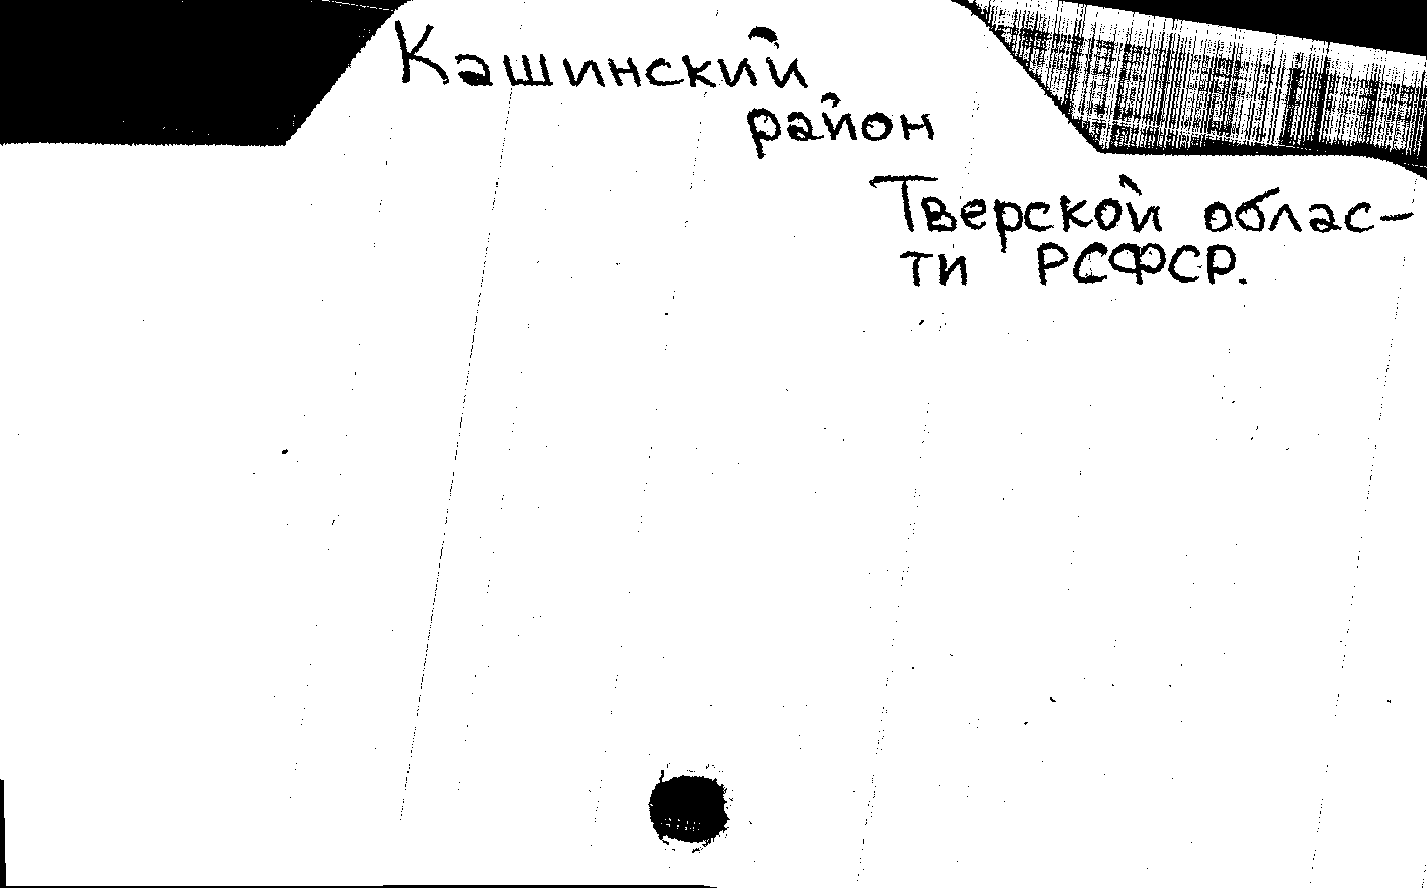 Кашинский
район
Тверской облас-
ти РСФСР.